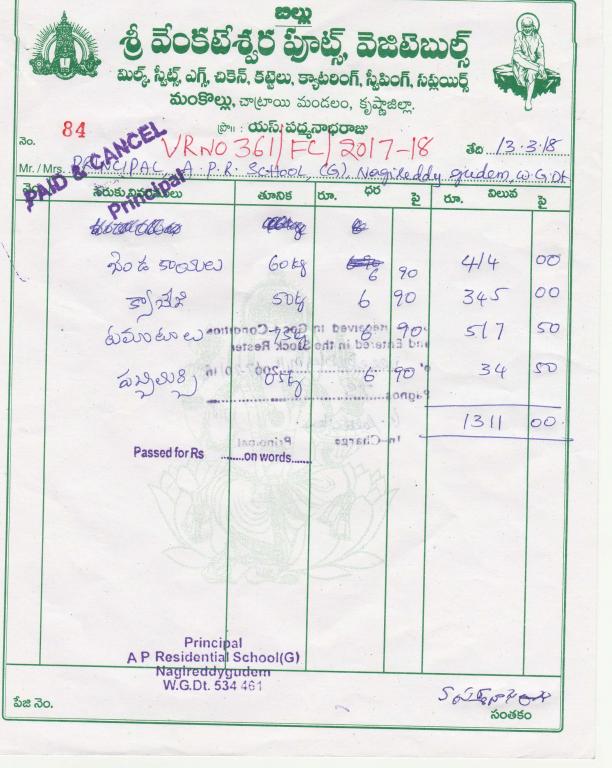 బిల్లు
శ్రీ వేంకటేశ్వర ఫ్రూట్స్, వెజిటెబుల్స్
మిల్క్, స్వీట్స్, ఎగ్స్, చికెన్, కట్టెలు, క్యాటరింగ్, స్వీపింగ్, సప్లయిర్స్
మంకొల్లు, చాట్రాయి మండలం, కృష్ణాజిల్లా.
నెం. 84 ప్రొ॥ : యస్. పద్మనాభరాజు
VR NO 361/FC/2017-18 తేది 13.3.18
PAID & CANCEL
Principal
Mr. / Mrs. PRINCIPAL, A.P.R. SCHOOL (G), Nagireddy gudem, W.G.Dt
నెం. సరుకు వివరములు తూనిక రూ. ధర పై రూ. విలువ పై
బెండకాయలు 60kg 6 90 414 00
క్యాబేజి 50kg 6 90 345 00
టమాటాలు 75kg 6 90 517 50
పచ్చిమిర్చి 05kg 6 90 34 50
received in Good Condition
and Entered in the Stock Rester
1311 00
In-Charge Principal
Passed for Rs ........on words.......
Principal
A P Residential School(G)
Nagireddygudem
W.G.Dt. 534 461
పేజి నెం.
సంతకం